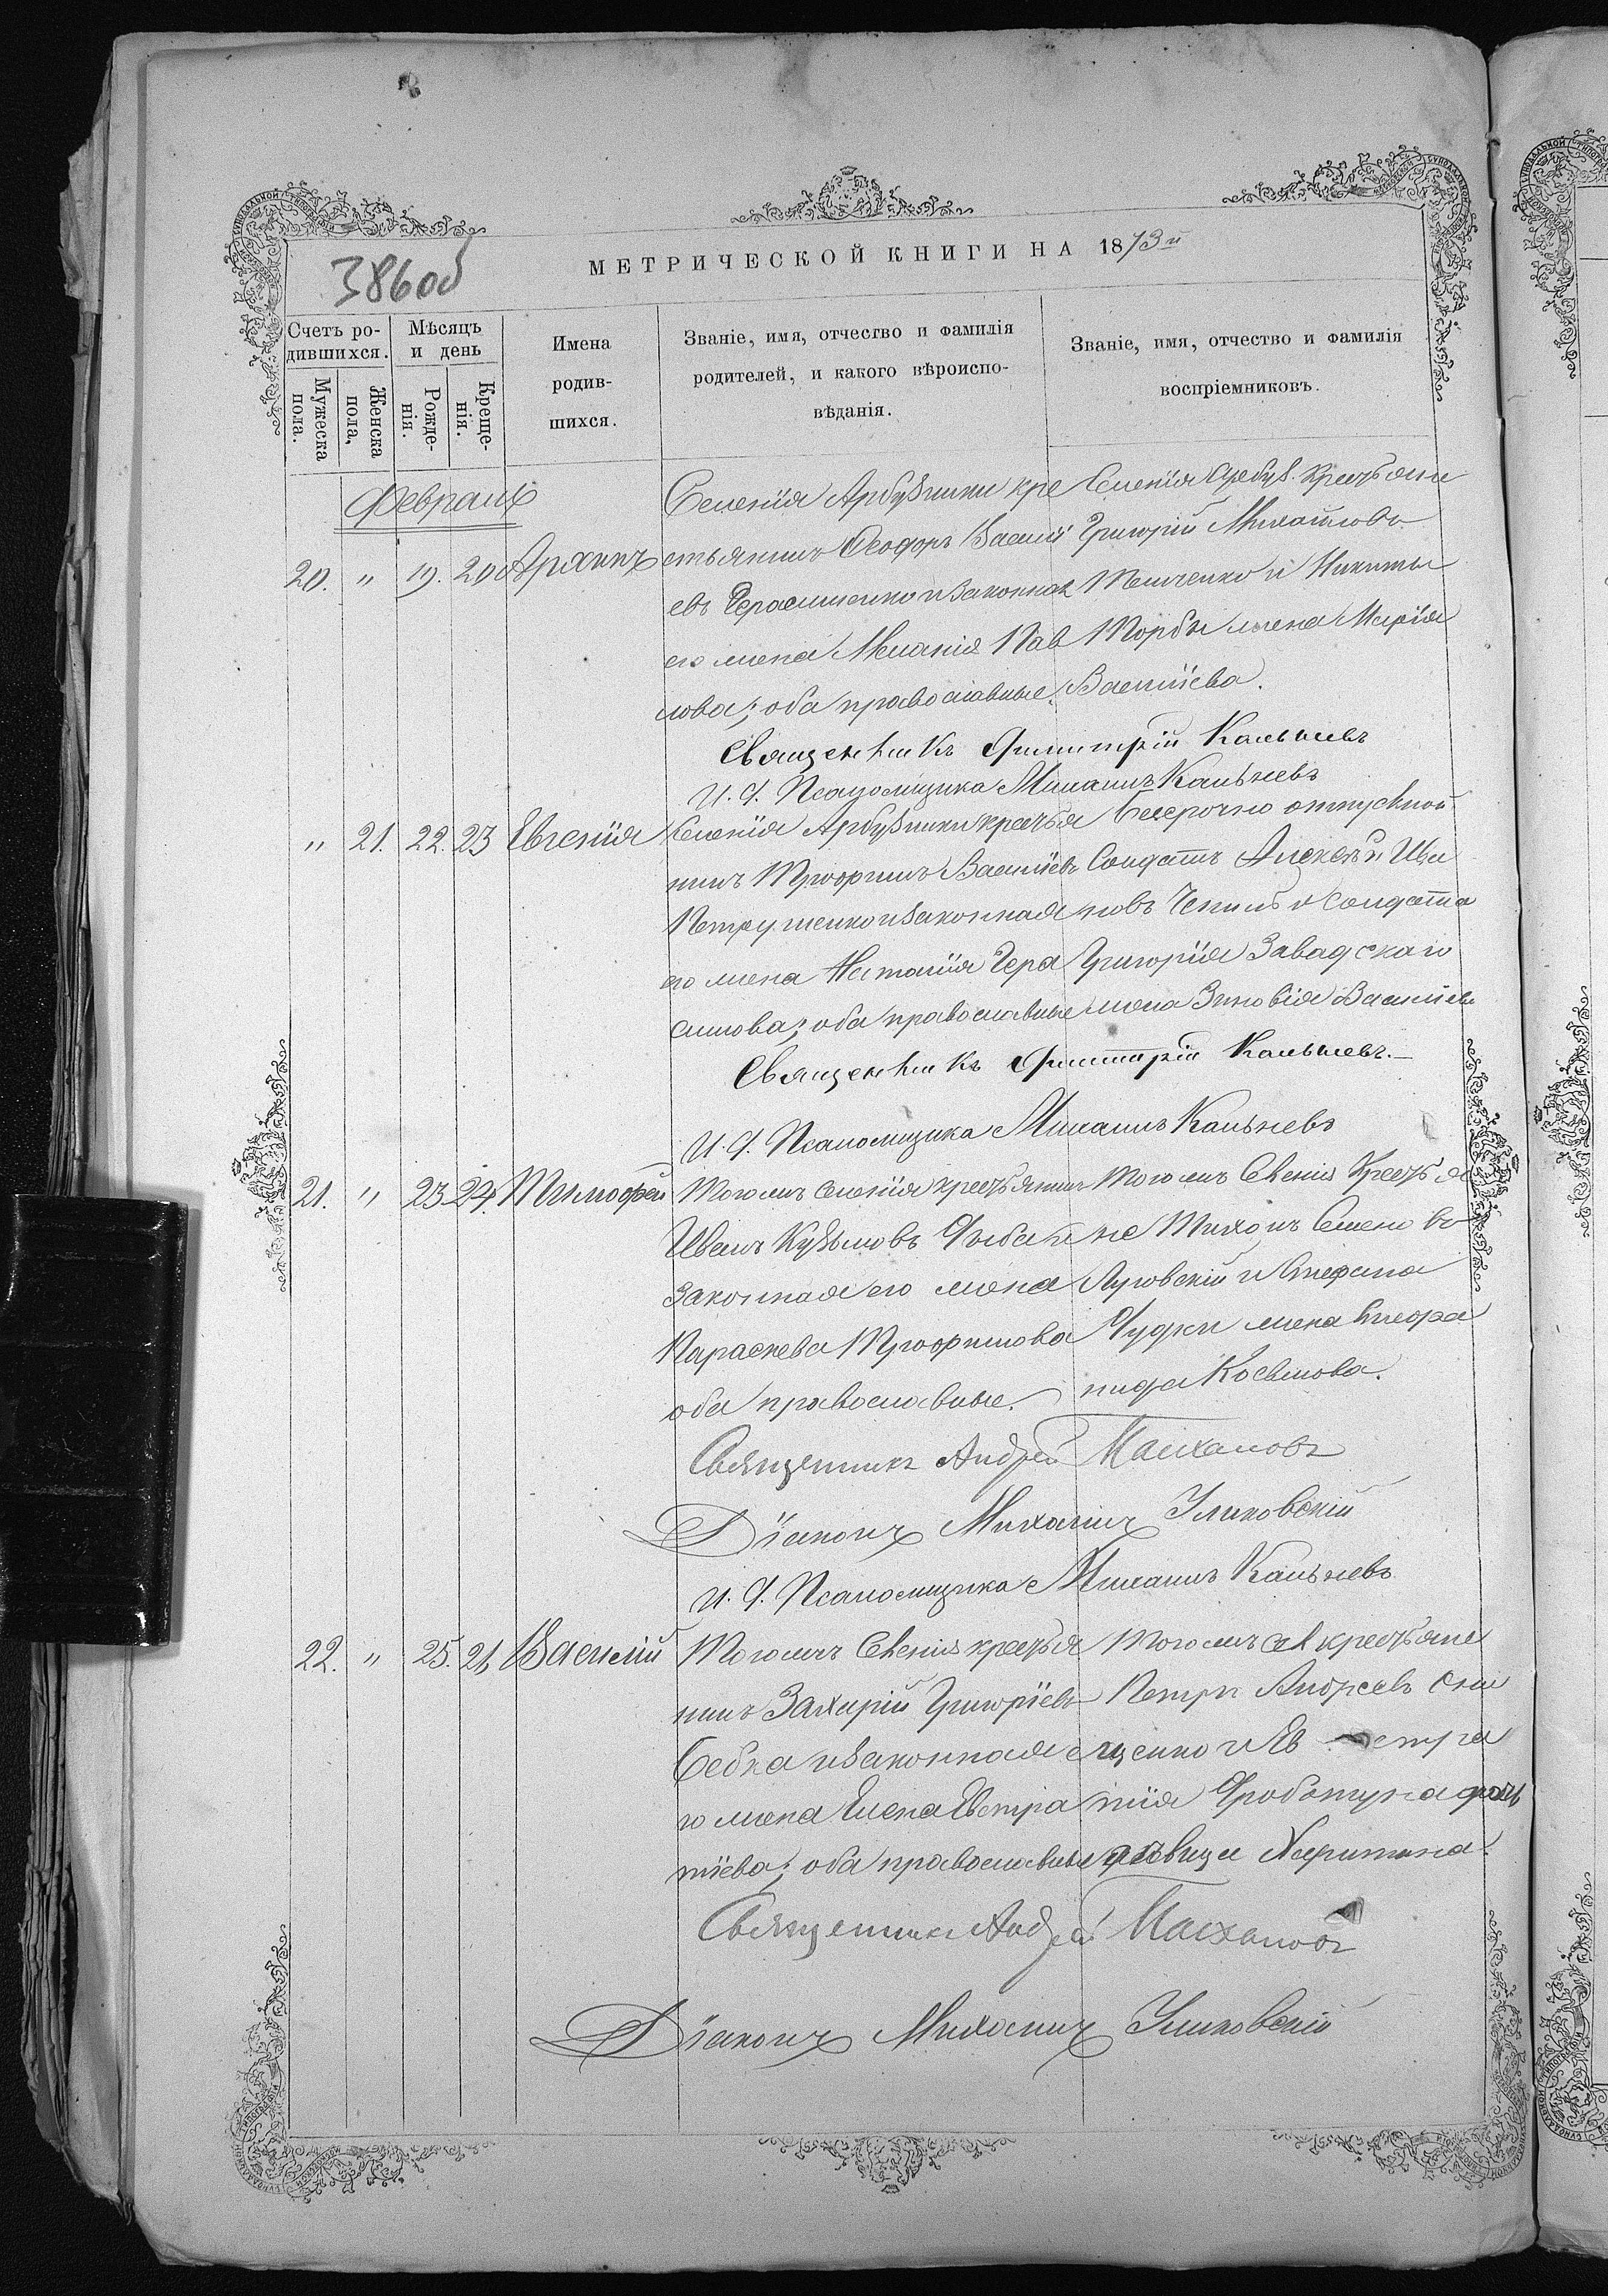 МЕТРИЧЕСКОЙ КНИГИ НА 1873й
386 об
Счетъ ро-
дившихся.
Мужеска
пола.
Женска
пола,
Мѣсяцъ
и день
Рожде-
нія.
Креще-
нія.
Имена
родив-
шихся.
Званіе, имя, отчество и фамилія
родителей, и какого вѣроиспо-
вѣданія.
Званіе, имя, отчество и фамилія
воспріемниковъ.
Февраль
20. " 19. 20 Архипъ
Селенія Арбузинки кре
стьянинъ Ѳеодоръ Василі
евъ Герасименко и законная
его жена Меланія Пав
лова; оба православные.
Селенія Арбуз. Крестьяне
Григорій Михайловъ
и Никиты
Торбы жена Марія
Василіева.
Священникъ Димитрій Кальневъ
И. д. Псаломщика Михаилъ Кальневъ
" 21. 22. 23 Евгенія
Селенія Арбузинки крестья
нинъ Трофимъ Василіевъ
Петрушенко и законная
его жена Наталія Гера
симова; оба православные
Безсрочно отпускной
Солдатъ Алексѣй Ива
новъ Чепиль и солдата
Григорія Завадскаго
жена Зиновія Василіева
Священникъ Димитрій Кальневъ.
И. д. Псаломщика Михаилъ Кальневъ
21. " 23 24. Тимофей
Того жъ селенія крестьянинъ
Иванъ Кузьмовъ и
законная его жена
Параскева Трофимова
оба православные.
Того жъ Селенія Крестья
не Тихонъ Семеновъ
Луговскій и Стефана
Чудки жена
нида Косьмова.
Священникъ Андрей Малхановъ
Діаконъ Михаилъ
И. д. Псаломщика Михаилъ Кальневъ
22. " 25. 26 Василій
Того жъ Селенія крестья
нинъ Захарій Григоріевъ
и законная е
го жена Елена Евстра
тіева; оба православные
Того жъ сел крестьяне
Петръ Андреевъ Они
щенко и Ев стра
тія дочь
дѣвица Харитина.
Священникъ Андрей Малхановъ
Діаконъ Михаилъ